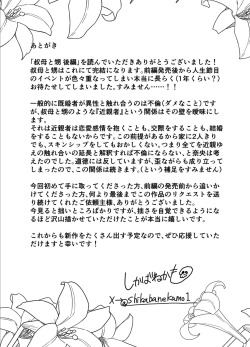 あとがき
「叔母と甥 後編」を読んでいただきありがとうございました！
叔母と甥はこれにて完結になります。前編発売後から人生節目
のイベントが色々重なってしまい本当に長らく（1年くらい？）
お待たせしてしまいました。すみません……！！
一般的に既婚者が異性と触れ合うのは不倫（ダメなこと）です
が、叔母と甥のような『近親者』という関係はその壁を曖昧にし
ます。
それは近親者は恋愛感情を抱くことも、交際をすることも、結婚
をすることもないからです。この前提があるから家に2人きり
でも、スキンシップをしてもおかしくない、つまり全てを近親ゆ
えの触れ合いの延長と解釈すれば不倫にならない、と奈央は考
えていました。道徳には反していますが、歪ながらも成り立って
しまったので、この関係に続きます。（という補足をすみません）
今回初めて手に取ってくださった方、前編の発売前から追いか
けてくださった方、何より最後までこの作品のリクエストを送
り続けてくれたご依頼主様、ありがとうございました。
今見ると拙いところばかりですが、描きを自覚できるようになる
ほど沢山描かせていただけたこと、本当に感謝しております。
これからも新作をたくさん出す予定なので、ぜひ応援してい
ただけますと幸いです！
しかばねかも
X→@shikabanekamo1